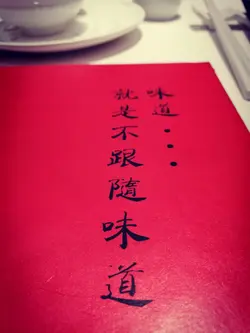 味道...
就是不跟隨味道